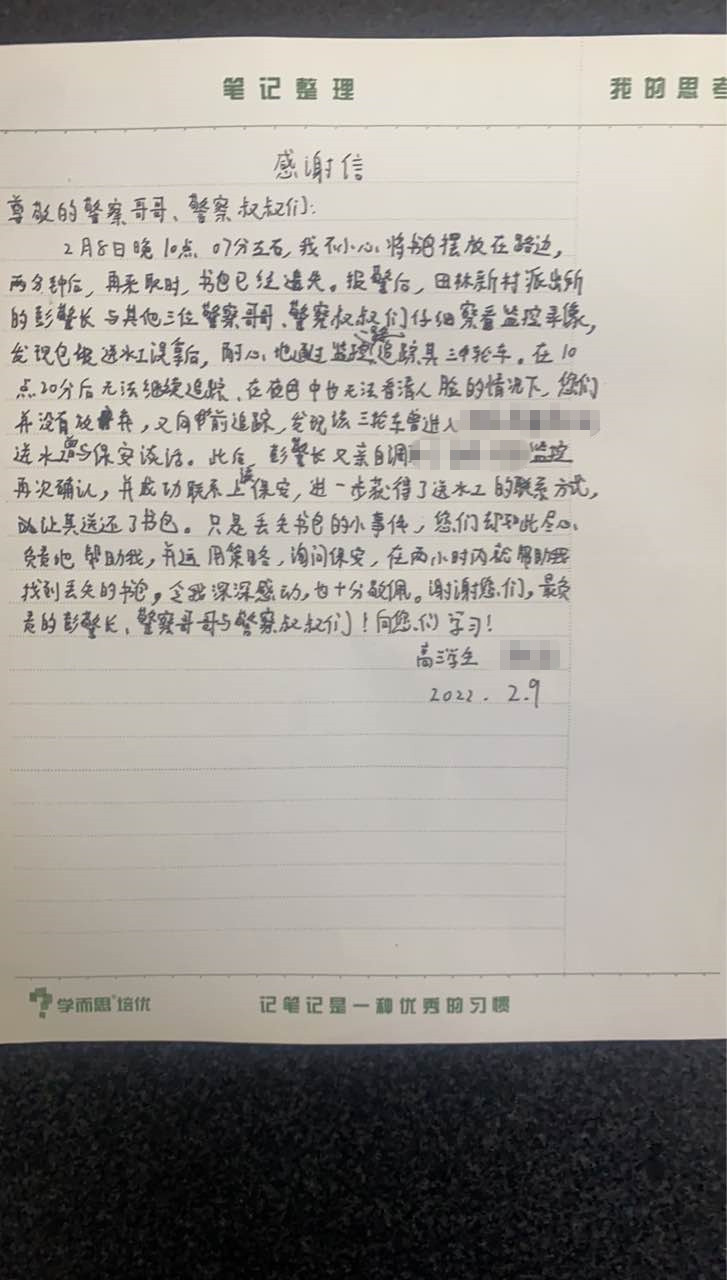 笔记整理
我的思考
感谢信
尊敬的警察哥哥、警察叔叔们:
2月8日晚10点07分左右,我不小心将书包摆放在路边,
两分钟后,再来取时,书包已经遗失。报警后,田林新村派出所
的彭警长与其他三位警察哥哥、警察叔叔们仔细察看监控录像,
发现包被送水工误拿后,耐心地通过监控追踪其三轮车。在10
点20分后无法继续追踪,在夜色中也无法看清人脸的情况下,您们
并没有放弃,又向前追踪,发现该三轮车曾进入
送水曾与保安谈话。此后,彭警长又亲自调监控
再次确认,并成功联系上该保安,进一步获得了送水工的联系方式,
让其送还了书包。只是丢失书包的小事件,您们却如此尽心、
负责地帮助我,并运用策略,询问保安,在两小时内就帮助我
找到丢失的书包,令我深深感动,也十分敬佩。谢谢您们,最负
责的彭警长、警察哥哥与警察叔叔们!向您们学习!
高三学生
2022.2.9
学而思培优
记笔记是一种优秀的习惯